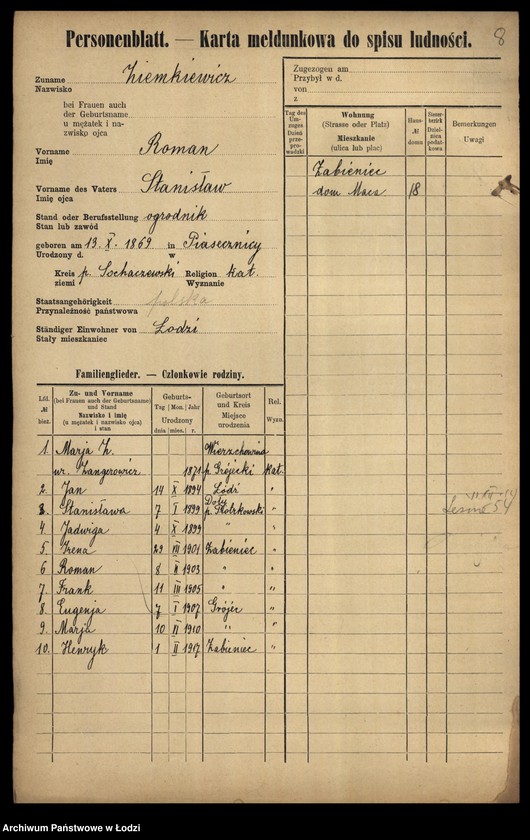 Personenblatt. — Karta meldunkowa do spisu ludności.
8
Zuname Ziemkiewicz
Nazwisko
bei Frauen auch
der Geburtsname
u mężatek i na-
zwisko ojca
Vorname Roman
Imię
Vorname des Vaters Stanisław
Imię ojca
Stand oder Berufsstellung ogrodnik
Stan lub zawód
geboren am 13. X. 1869 in Piasecznicy
Urodzony d. w
Kreis p. Sochaczewski Religion kat.
ziemi Wyznanie
Staatsangehörigkeit polska
Przynależność państwowa
Ständiger Einwohner von Łodzi
Stały mieszkaniec
Zugezogen am
Przybył w d.
von
z
Tag des Um-zuges Dzień prze-prowadzki
Wohnung (Strasse oder Platz) Mieszkanie (ulica lub plac)
Haus- № domu
Steuer-bezirk Dziel-nica podat-kowa
Bemerkungen Uwagi
Żabieniec
dom Maca 18
Familienglieder. — Członkowie rodziny.
Lfd. № bież.
Zu- und Vorname (bei Frauen auch der Geburtsname) und Stand Nazwisko i imię (u mężatek i nazwisko ojca) i stan
Geburts- Tag Mon. Jahr Urodzony dnia mies. r.
Geburtsort und Kreis Miejsce urodzenia
Rel. Wyzn.
1. Marja Z. Wierzchowina
ur. Zangerowicz 1871 p. Grójecki kat.
2. Jan 14 X 1894 Łódź "
3. Stanisława 7 I 1899 Doły p. Piotrkowski "
4. Jadwiga 4 X 1899 " "
5. Irena 29 III 1901 Żabieniec "
6. Roman 8 II 1903 " "
7. Frank 11 III 1905 " "
8. Eugenja 7 I 1907 Grójec "
9. Marja 10 II 1910 " "
10. Henryk 1 II 1917 Żabieniec "
54
Archiwum Państwowe w Łodzi